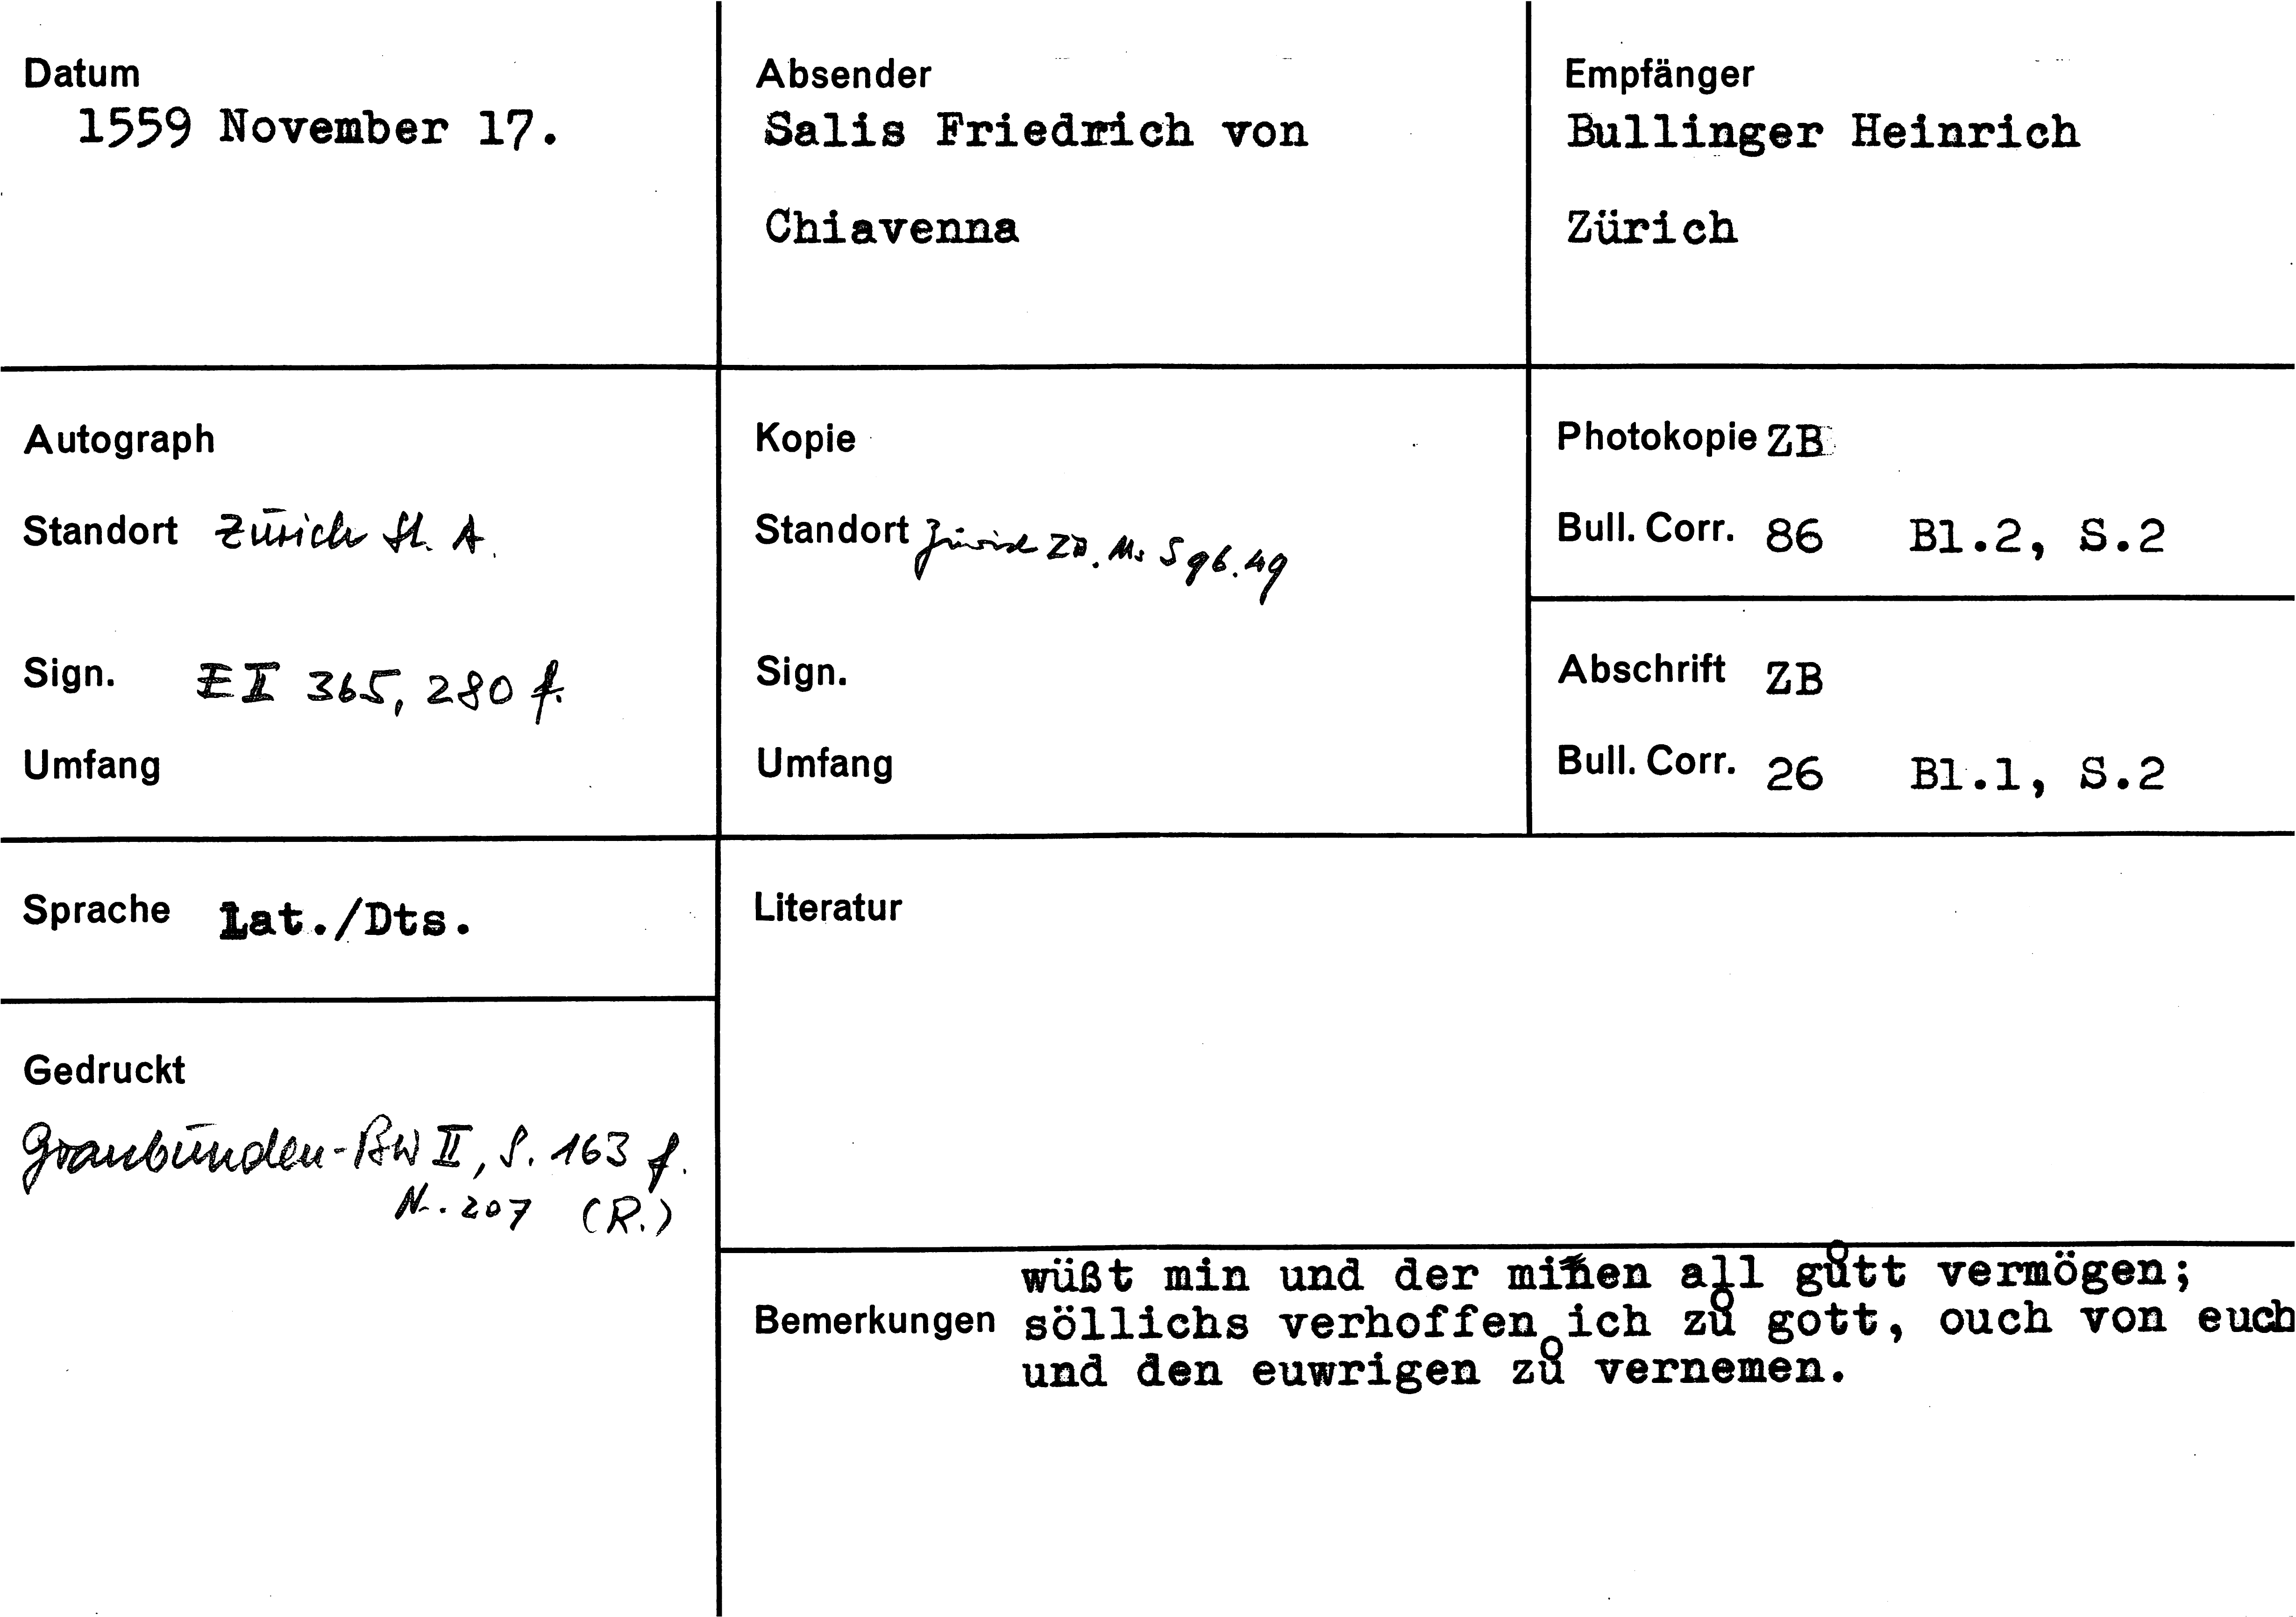 Datum
1559 November 17.
Absender
Salis Friedrich von
Chiavenna
Empfänger
Bullinger Heinrich
Zürich
Autograph
Standort Zürich St. A.
Sign. E II 365, 280 f.
Umfang
Kopie
Standort Zürich ZB. Ms S 96.49
Sign.
Umfang
Photokopie ZB
Bull. Corr. 86 Bl.2, S.2
Abschrift ZB
Bull. Corr. 26 Bl.1, S.2
Sprache Lat./Dts.
Literatur
Gedruckt
Graubünden-BW II, S. 163 f.
Nr. 207 (R.)
Bemerkungen
wüßt min und der minen all gůtt vermögen;
söllichs verhoffen ich zů gott, ouch von euch
und den euwrigen zů vernemen.